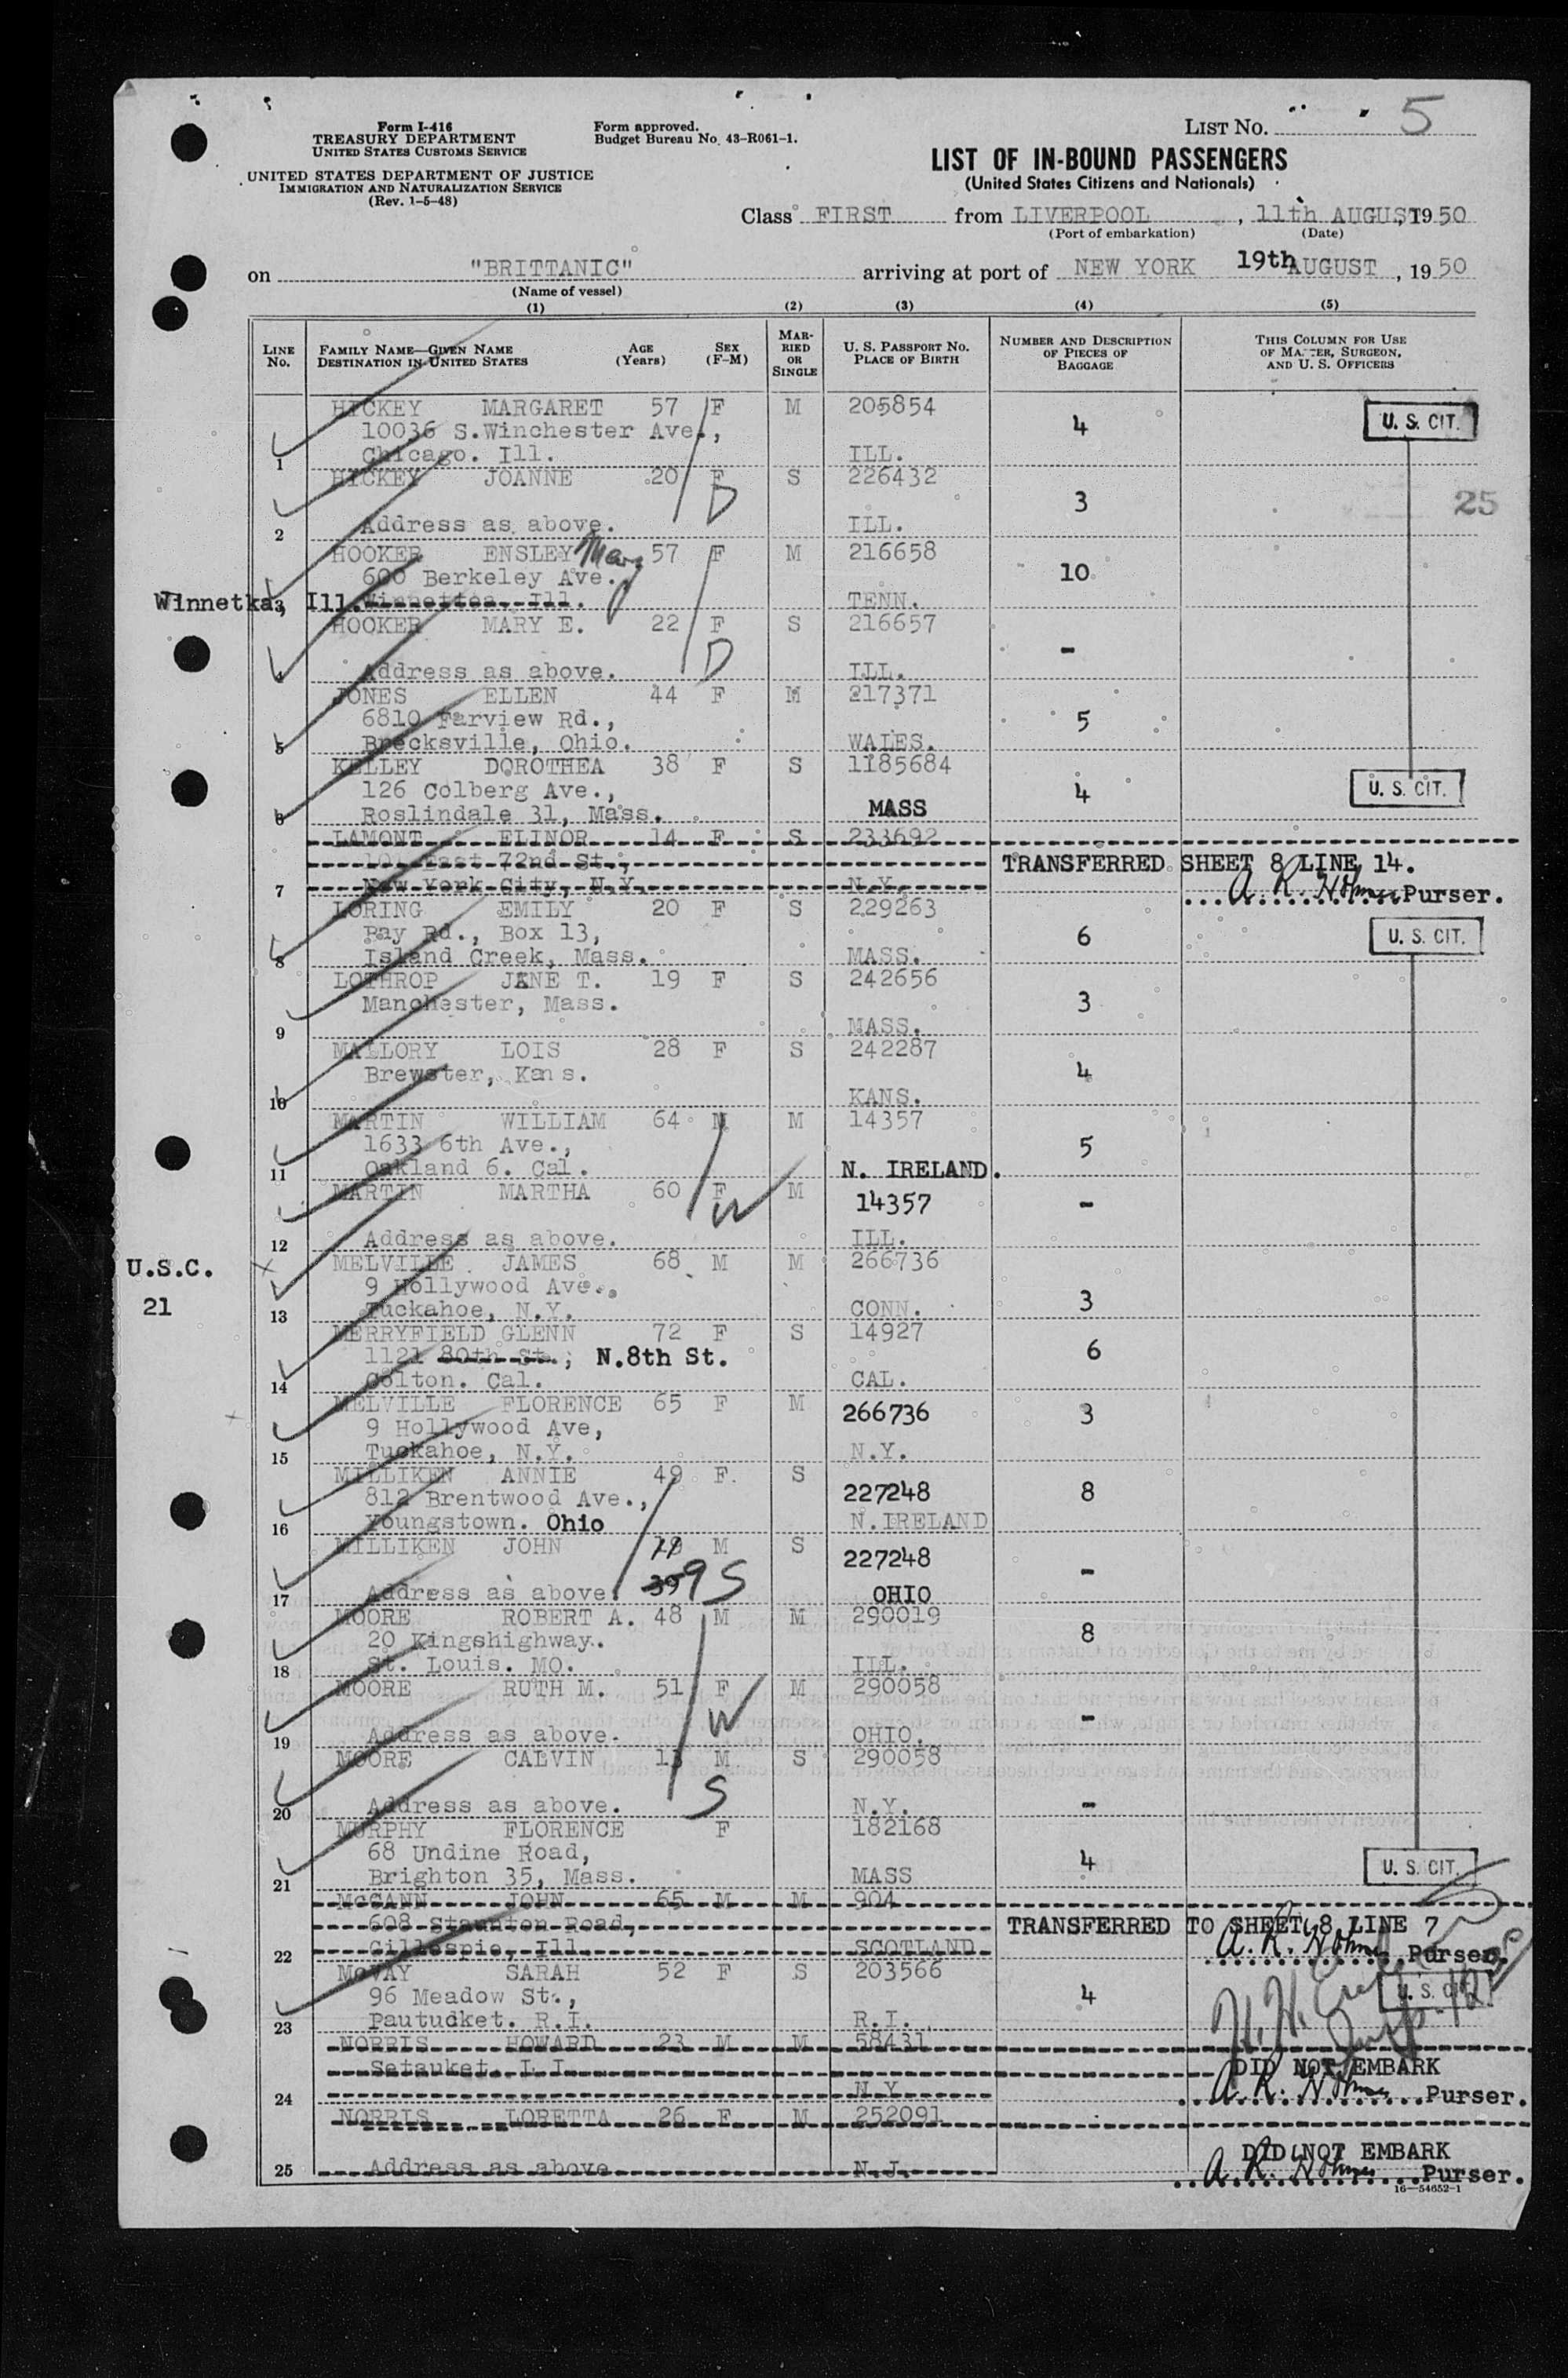 Form I-416
TREASURY DEPARTMENT
UNITED STATES CUSTOMS SERVICE
UNITED STATES DEPARTMENT OF JUSTICE
IMMIGRATION AND NATURALIZATION SERVICE
(Rev. 1-5-48)
Form approved.
Budget Bureau No. 43-R061-1.
LIST NO. 5
LIST OF IN-BOUND PASSENGERS
(United States Citizens and Nationals)
Class FIRST from LIVERPOOL, 11th AUGUST, 1950
(Port of embarkation) (Date)
on "BRITTANIC" arriving at port of NEW YORK 19th AUGUST, 1950
(Name of vessel)
(1) (2) (3) (4) (5)
LINE No. FAMILY NAME—GIVEN NAME DESTINATION IN UNITED STATES AGE (Years) SEX (F-M) MARRIED OR SINGLE U. S. PASSPORT NO. PLACE OF BIRTH NUMBER AND DESCRIPTION OF PIECES OF BAGGAGE THIS COLUMN FOR USE OF MASTER, SURGEON, AND U. S. OFFICERS
HICKEY MARGARET 57 F M 205854
10036 S.Winchester Ave., 4 U. S. CIT.
1 Chicago. Ill. ILL.
HICKEY JOANNE 20 F S 226432
D 3 25
2 Address as above. ILL.
HOOKER ENSLEY Mary 57 F M 216658
600 Berkeley Ave., 10
3 Winnetka, Ill. Winnettea, Ill. TENN.
HOOKER MARY E. 22 F S 216657
D -
4 Address as above. ILL.
JONES ELLEN 44 F M 217371
6810 Farview Rd., 5
5 Brecksville, Ohio. WALES.
KELLEY DOROTHEA 38 F S 1185684
126 Colberg Ave., 4 U. S. CIT.
6 Roslindale 31, Mass. MASS
LAMONT ELINOR 14 F S 233692
East 72nd St., TRANSFERRED SHEET 8 LINE 14.
7 New York City, N.Y. N.Y. A. R. Holmes Purser.
LORING EMILY 20 F S 229263
Bay Rd., Box 13, 6 U. S. CIT.
8 Island Creek, Mass. MASS.
LOTHROP JANE T. 19 F S 242656
Manchester, Mass. 3
9 MASS.
MALLORY LOIS 28 F S 242287
Brewster, Kans. 4
10 KANS.
MARTIN WILLIAM 64 M M 14357
1633 6th Ave., 5
11 Oakland 6. Cal. N. IRELAND.
MARTIN MARTHA 60 F M 14357
W -
12 Address as above. ILL.
U.S.C. MELVILLE JAMES 68 M M 266736
21 9 Hollywood Ave. 3
13 Tuckahoe, N.Y. CONN.
MERRYFIELD GLENN 72 F S 14927
1121 80th St., N.8th St. 6
14 Colton. Cal. CAL.
MELVILLE FLORENCE 65 F M 266736
9 Hollywood Ave, 3
15 Tuckahoe, N.Y. N.Y.
MILLIKEN ANNIE 49 F. S 227248
812 Brentwood Ave., 8
16 Youngstown. Ohio N.IRELAND
MILLIKEN JOHN M S 227248
-
17 Address as above. 39 9 S OHIO
MOORE ROBERT A. 48 M M 290019
20 Kingshighway. 8
18 St. Louis. MO. ILL.
MOORE RUTH M. 51 F M 290058
W -
19 Address as above. OHIO.
MOORE CALVIN 13 M S 290058
S -
20 Address as above. N.Y.
MURPHY FLORENCE F 182168
68 Undine Road, 4 U. S. CIT.
21 Brighton 35, Mass. MASS
McCANN JOHN 65 M M 904
608 Staunton Road, TRANSFERRED TO SHEET 8 LINE 7
22 Gillespie, Ill. SCOTLAND A. R. Holmes Purser.
McVAY SARAH 52 F S 203566
96 Meadow St., 4 U. S. CIT.
23 Pautucket. R.I. R.I.
NORRIS HOWARD 23 M M 58431
Setauket. L.I. DID NOT EMBARK
24 N.Y. A. R. Holmes Purser.
NORRIS LORETTA 26 F M 252091
DID NOT EMBARK
25 Address as above N.J. A. R. Holmes Purser.
16—54652-1